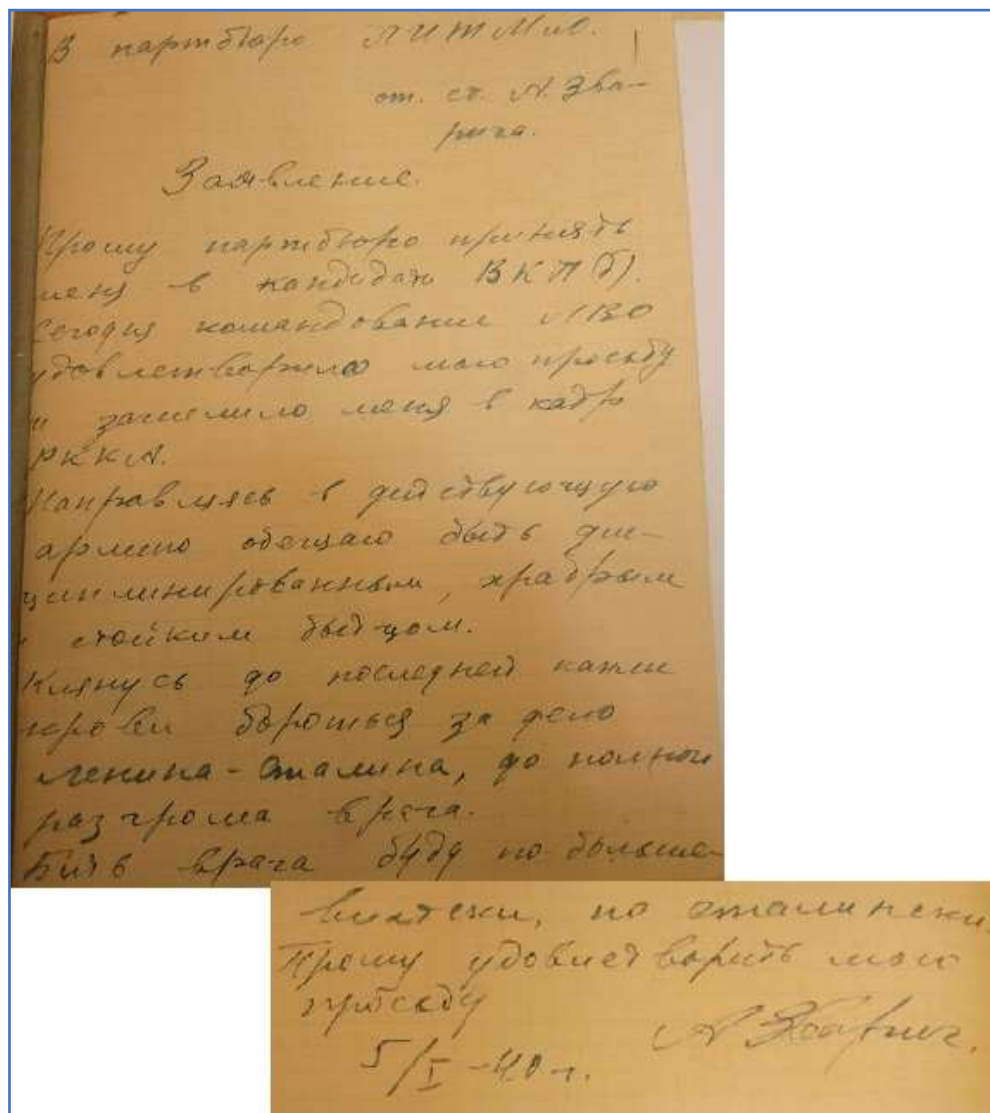 В партбюро ЛИТМиО.
от. ст. А. Зва-
рича.
Заявление.
Прошу партбюро принять
меня в кандидаты ВКП(б).
Сегодня командование ЛВО
удовлетворило мою просьбу
и зачислило меня в кадр
РККА.
Направляясь в действующую
армию обещаю быть дис-
циплинированным, храбрым
и стойким бойцом.
Клянусь до последней капли
крови бороться за дело
Ленина-Сталина, до полного
разгрома врага.
Бить врага буду по-больше-
вистски, по сталински.
Прошу удовлетворить мою
просьбу
А Зварич.
5/I-40 г.